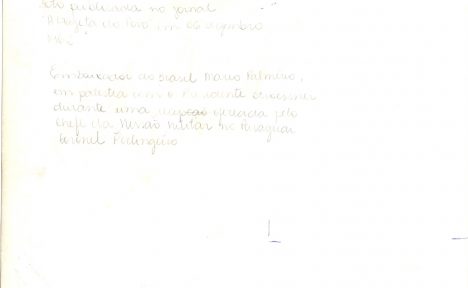 Foto publicada no jornal
"A Gazeta do Povo em 06 dezembro
1962
Embaixador do Brasil Mario Palmério,
em palestra com o Presidente Stroessner
durante uma recepção oferecida pelo
Chefe da Missão Militar no Paraguai
Coronel